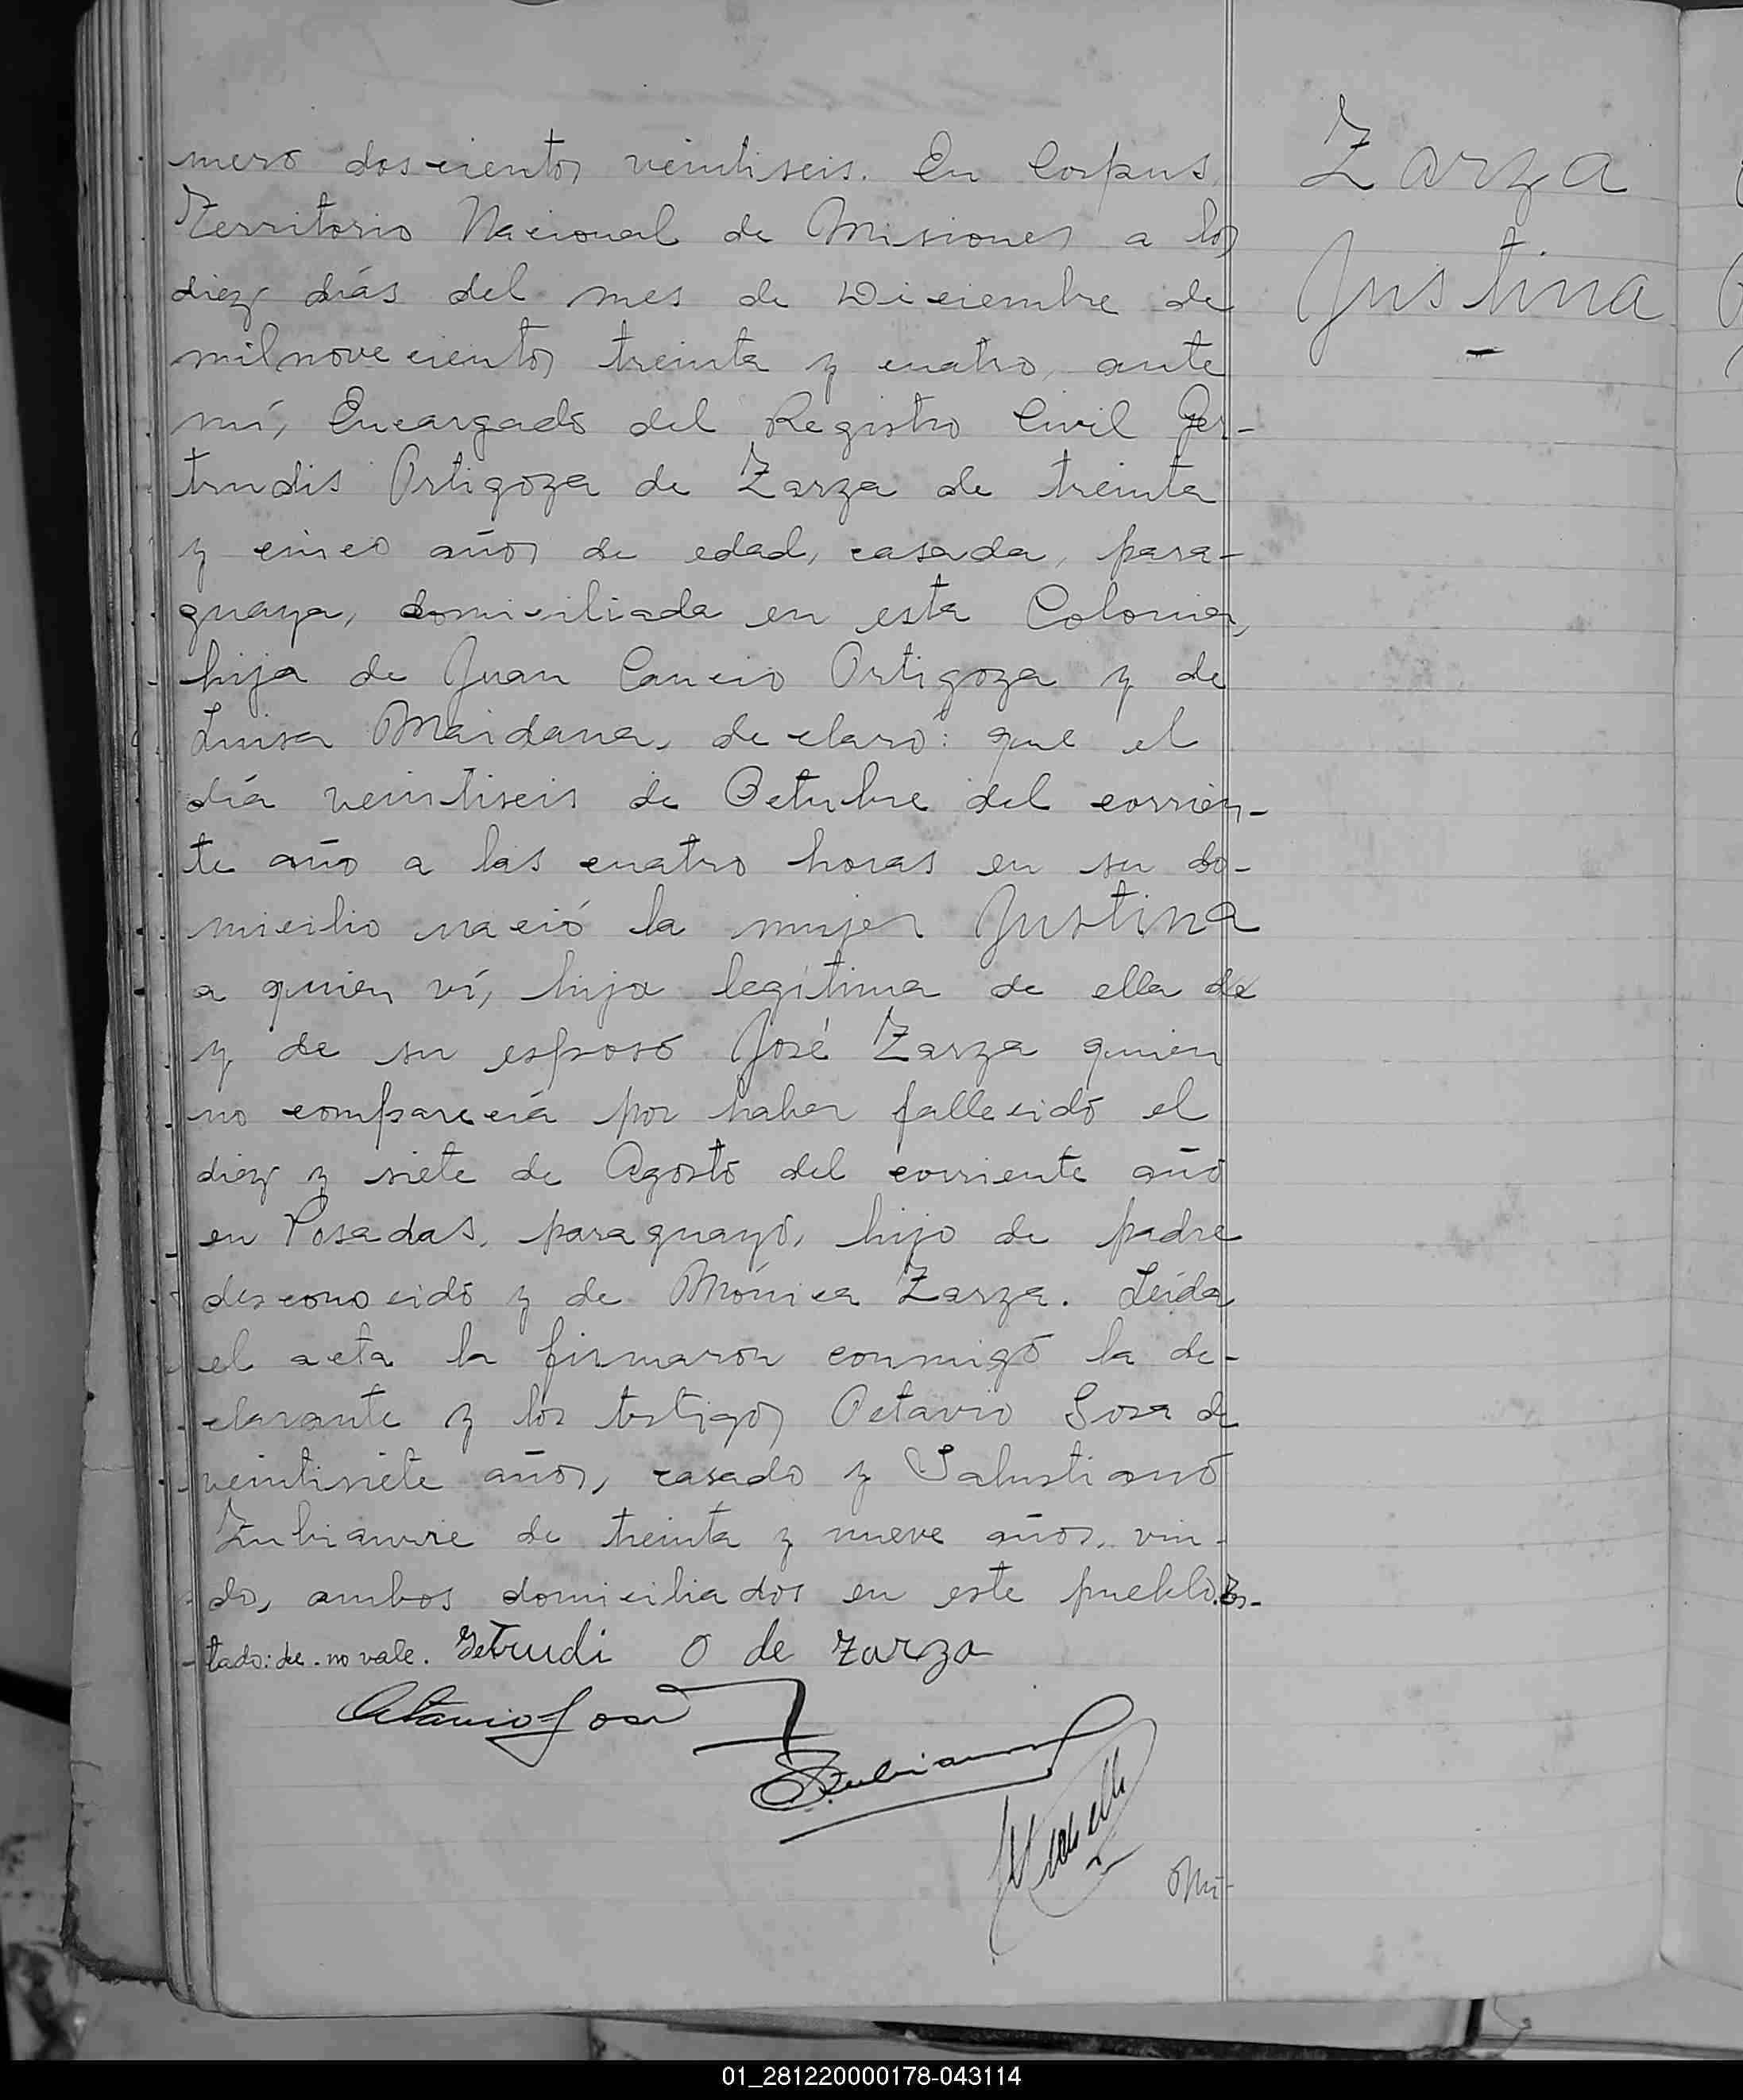 mero doscientos veintiseis. En Corpus,
Territorio Nacional de Misiones a los
diez días del mes de Diciembre de
mil novecientos treinta y cuatro, ante
mí, Encargado del Registro Civil Ger-
trudis Ortigoza de Zarza de treinta
y cinco años de edad, casada, para-
guaya, domiciliada en esta Colonia,
hija de Juan Cancio Ortigoza y de
Luisa Maidana, declaró: que el
día veintiseis de Octubre del corrien-
te año a las cuatro horas en su do-
micilio nació la mujer Justina
a quien ví, hija legítima de ella de
y de su esposo José Zarza quien
no comparecía por haber fallecido el
diez y siete de Agosto del corriente año
en Posadas, paraguayo, hijo de padre
desconocido y de Mónica Zarza. Leída
el acta la firmaron conmigo la de-
clarante y los testigos Octavio Sosa de
veintisiete años, casado y Salustiano
Zubiaurre de treinta y nueve años, viu-
do, ambos domiciliados en este pueblo. Es-
tado: de . no vale. Getrudi O de Zarza
Octavio Sosa
S. Zubiaurre
Nú-
Zarza
Justina
01_281220000178-043114